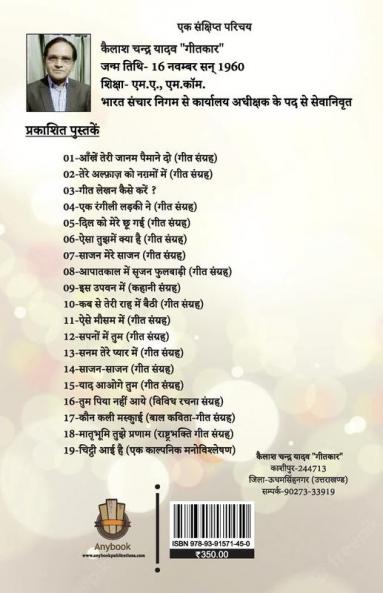 एक संक्षिप्त परिचय
कैलाश चन्द्र यादव "गीतकार"
जन्म तिथि- 16 नवम्बर सन् 1960
शिक्षा- एम.ए., एम.कॉम.
भारत संचार निगम से कार्यालय अधीक्षक के पद से सेवानिवृत
प्रकाशित पुस्तकें
01-आँखें तेरी जानम पैमाने दो (गीत संग्रह)
02-तेरे अल्फ़ाज़ को नग़मों में (गीत संग्रह)
03-गीत लेखन कैसे करें ?
04-एक रंगीली लड़की ने (गीत संग्रह)
05-दिल को मेरे छू गई (गीत संग्रह)
06-ऐसा तुझमें क्या है (गीत संग्रह)
07-साजन मेरे साजन (गीत संग्रह)
08-आपातकाल में सृजन फुलबाड़ी (गीत संग्रह)
09-इस उपवन में (कहानी संग्रह)
10-कब से तेरी राह में बैठी (गीत संग्रह)
11-ऐसे मौसम में (गीत संग्रह)
12-सपनों में तुम (गीत संग्रह)
13-सनम तेरे प्यार में (गीत संग्रह)
14-साजन-साजन (गीत संग्रह)
15-याद आओगे तुम (गीत संग्रह)
16-तुम पिया नहीं आये (विविध रचना संग्रह)
17-कौन कली मस्कुाई (बाल कविता-गीत संग्रह)
18-मातृभूमि तुझे प्रणाम (राष्ट्रभक्ति गीत संग्रह)
19-चिट्ठी आई है (एक काल्पनिक मनोविश्लेषण)
कैलाश चन्द्र यादव "गीतकार"
काशीपुर-244713
जिला-ऊधमसिंहनगर (उत्तराखण्ड)
सम्पर्क-90273-33919
Anybook
www.anybookpublications.com
ISBN 978-93-91571-45-0
₹350.00